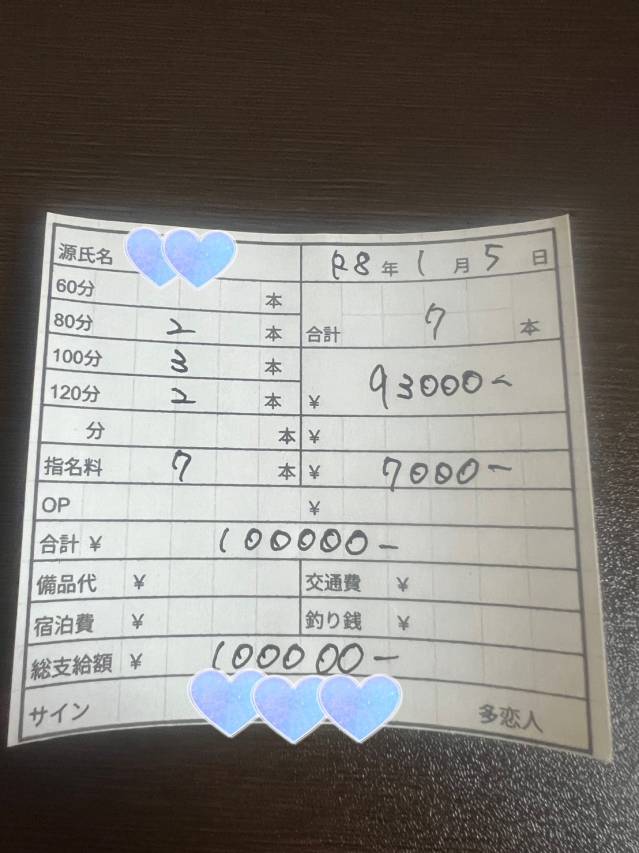 源氏名 R8年1月5日
60分 本
80分 2 本 合計 7 本
100分 3 本
120分 2 本 ¥ 93000-
分 本 ¥
指名料 7 本 ¥ 7000-
OP ¥
合計 ¥ 100000-
備品代 ¥ 交通費 ¥
宿泊費 ¥ 釣り銭 ¥
総支給額 ¥ 100000-
サイン 多恋人